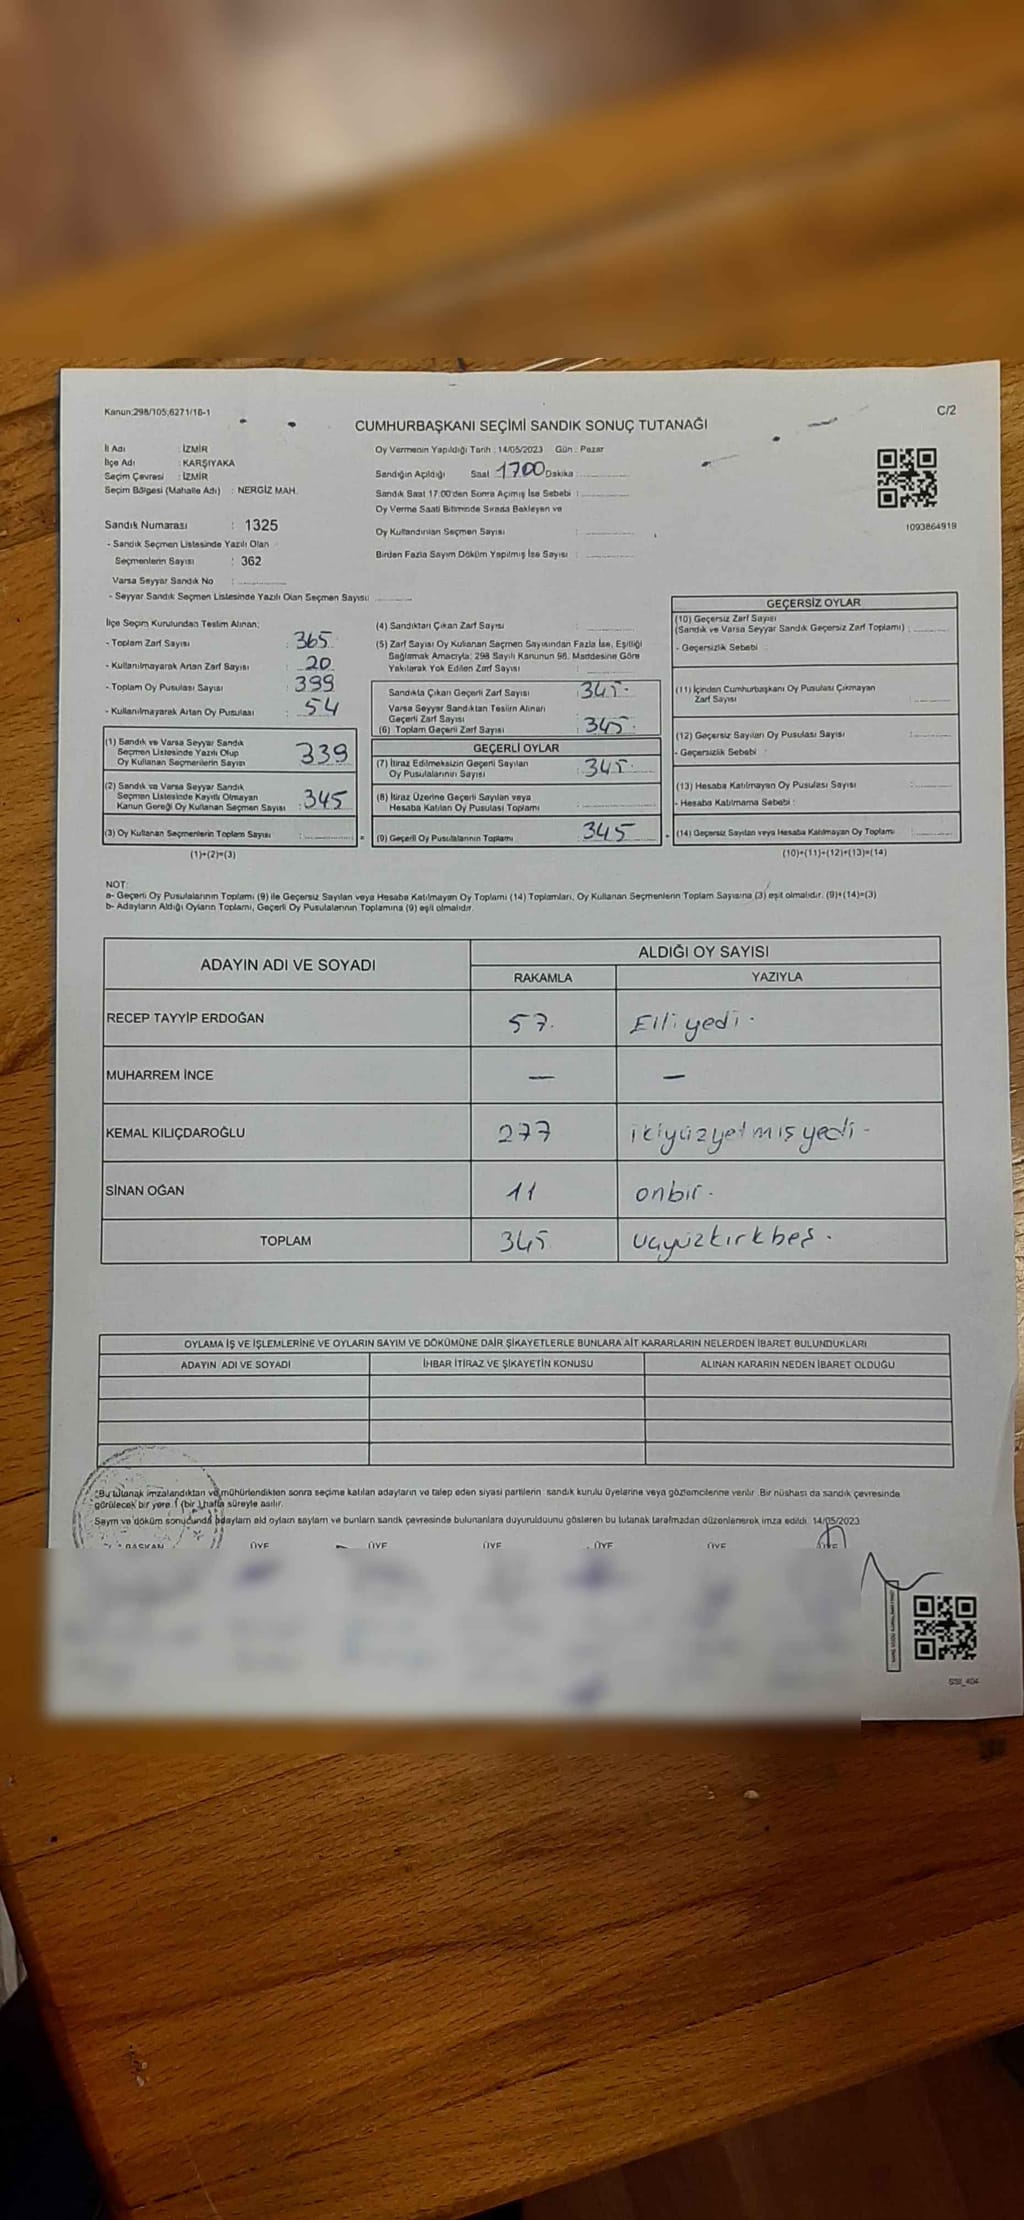 Kanun:298/105;6271/16-1
C/2
CUMHURBAŞKANI SEÇİMİ SANDIK SONUÇ TUTANAĞI
İl Adı : İZMİR
İlçe Adı : KARŞIYAKA
Seçim Çevresi : İZMİR
Seçim Bölgesi (Mahalle Adı) : NERGİZ MAH.
Oy Vermenin Yapıldığı Tarih : 14/05/2023 Gün : Pazar
Sandığın Açıldığı Saat 1700 Dakika
Sandık Saat 17.00'den Sonra Açımış İse Sebebi :
Oy Verme Saati Bitiminde Sırada Bekleyen ve
Oy Kullandırılan Seçmen Sayısı :
Birden Fazla Sayım Döküm Yapılmış İse Sayısı :
1093864919
Sandık Numarası : 1325
- Sandık Seçmen Listesinde Yazılı Olan
Seçmenlerin Sayısı : 362
Varsa Seyyar Sandık No :
- Seyyar Sandık Seçmen Listesinde Yazılı Olan Seçmen Sayısı:
İlçe Seçim Kurulundan Teslim Alınan;
- Toplam Zarf Sayısı : 365
- Kullanılmayarak Artan Zarf Sayısı : 20
- Toplam Oy Pusulası Sayısı : 399
- Kullanılmayarak Artan Oy Pusulası : 54
(1) Sandık ve Varsa Seyyar Sandık
Seçmen Listesinde Yazılı Olup
Oy Kullanan Seçmenlerin Sayısı 339
(2) Sandık ve Varsa Seyyar Sandık
Seçmen Listesinde Kayıtlı Olmayan
Kanun Gereği Oy Kullanan Seçmen Sayısı : 345
(3) Oy Kullanan Seçmenlerin Toplam Sayısı : =
(1)+(2)=(3)
(4) Sandıktan Çıkan Zarf Sayısı :
(5) Zarf Sayısı Oy Kullanan Seçmen Sayısından Fazla İse, Eşitliği
Sağlamak Amacıyla; 298 Sayılı Kanunun 98. Maddesine Göre
Yakılarak Yok Edilen Zarf Sayısı :
Sandıkta Çıkan Geçerli Zarf Sayısı : 345.
Varsa Seyyar Sandıktan Teslim Alınan
Geçerli Zarf Sayısı
(6) Toplam Geçerli Zarf Sayısı : 345.
GEÇERLİ OYLAR
(7) İtiraz Edilmeksizin Geçerli Sayılan
Oy Pusulalarının Sayısı : 345.
(8) İtiraz Üzerine Geçerli Sayılan veya
Hesaba Katılan Oy Pusulası Toplamı :
(9) Geçerli Oy Pusulalarının Toplamı : 345
GEÇERSİZ OYLAR
(10) Geçersiz Zarf Sayısı
(Sandık ve Varsa Seyyar Sandık Geçersiz Zarf Toplamı) :
- Geçersizlik Sebebi :
(11) İçinden Cumhurbaşkanı Oy Pusulası Çıkmayan
Zarf Sayısı :
(12) Geçersiz Sayılan Oy Pusulası Sayısı :
- Geçersizlik Sebebi :
(13) Hesaba Katılmayan Oy Pusulası Sayısı :
- Hesaba Katılmama Sebebi :
(14) Geçersiz Sayılan veya Hesaba Katılmayan Oy Toplamı :
(10)+(11)+(12)+(13)=(14)
NOT:
a- Geçerli Oy Pusulalarının Toplamı (9) ile Geçersiz Sayılan veya Hesaba Katılmayan Oy Toplamı (14) Toplamları, Oy Kullanan Seçmenlerin Toplam Sayısına (3) eşit olmalıdır. (9)+(14)=(3)
b- Adayların Aldığı Oyların Toplamı, Geçerli Oy Pusulalarının Toplamına (9) eşit olmalıdır.
ADAYIN ADI VE SOYADI
ALDIĞI OY SAYISI
RAKAMLA YAZIYLA
RECEP TAYYİP ERDOĞAN 57. Elliyedi.
MUHARREM İNCE — —
KEMAL KILIÇDAROĞLU 277 ikiyüzyetmişyedi-
SİNAN OĞAN 11 onbir.
TOPLAM 345 üçyüzkırkbeş.
OYLAMA İŞ VE İŞLEMLERİNE VE OYLARIN SAYIM VE DÖKÜMÜNE DAİR ŞİKAYETLERLE BUNLARA AİT KARARLARIN NELERDEN İBARET BULUNDUKLARI
ADAYIN ADI VE SOYADI İHBAR İTİRAZ VE ŞİKAYETİN KONUSU ALINAN KARARIN NEDEN İBARET OLDUĞU
*Bu tutanak imzalandıktan ve mühürlendikten sonra seçime katılan adayların ve talep eden siyasi partilerin sandık kurulu üyelerine veya gözlemcilerine verilir. Bir nüshası da sandık çevresinde
görülecek bir yere 1 (bir) hafta süreyle asılır.
Sayım ve döküm sonucunda adayların ald oyların sayların ve bunların sandık çevresinde bulunanlara duyurulduunu gösteren bu tutanak tarafmzdan düzenlenerek imza edildi. 14/05/2023
BAŞKAN ÜYE ÜYE ÜYE ÜYE ÜYE ÜYE
SSI_404